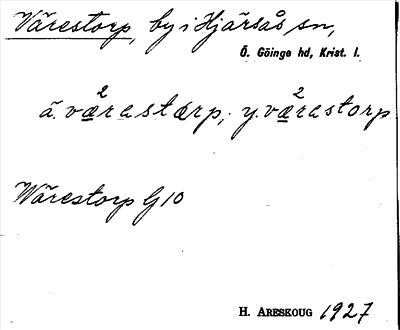 Värestorp, by i Hjärsås sn,
Ö. Göinge hd, Krist. l.
ä. væ²rastɑrp, y. væ²rastorp
Wärestorp G 10
H. ARESKOUG 1927